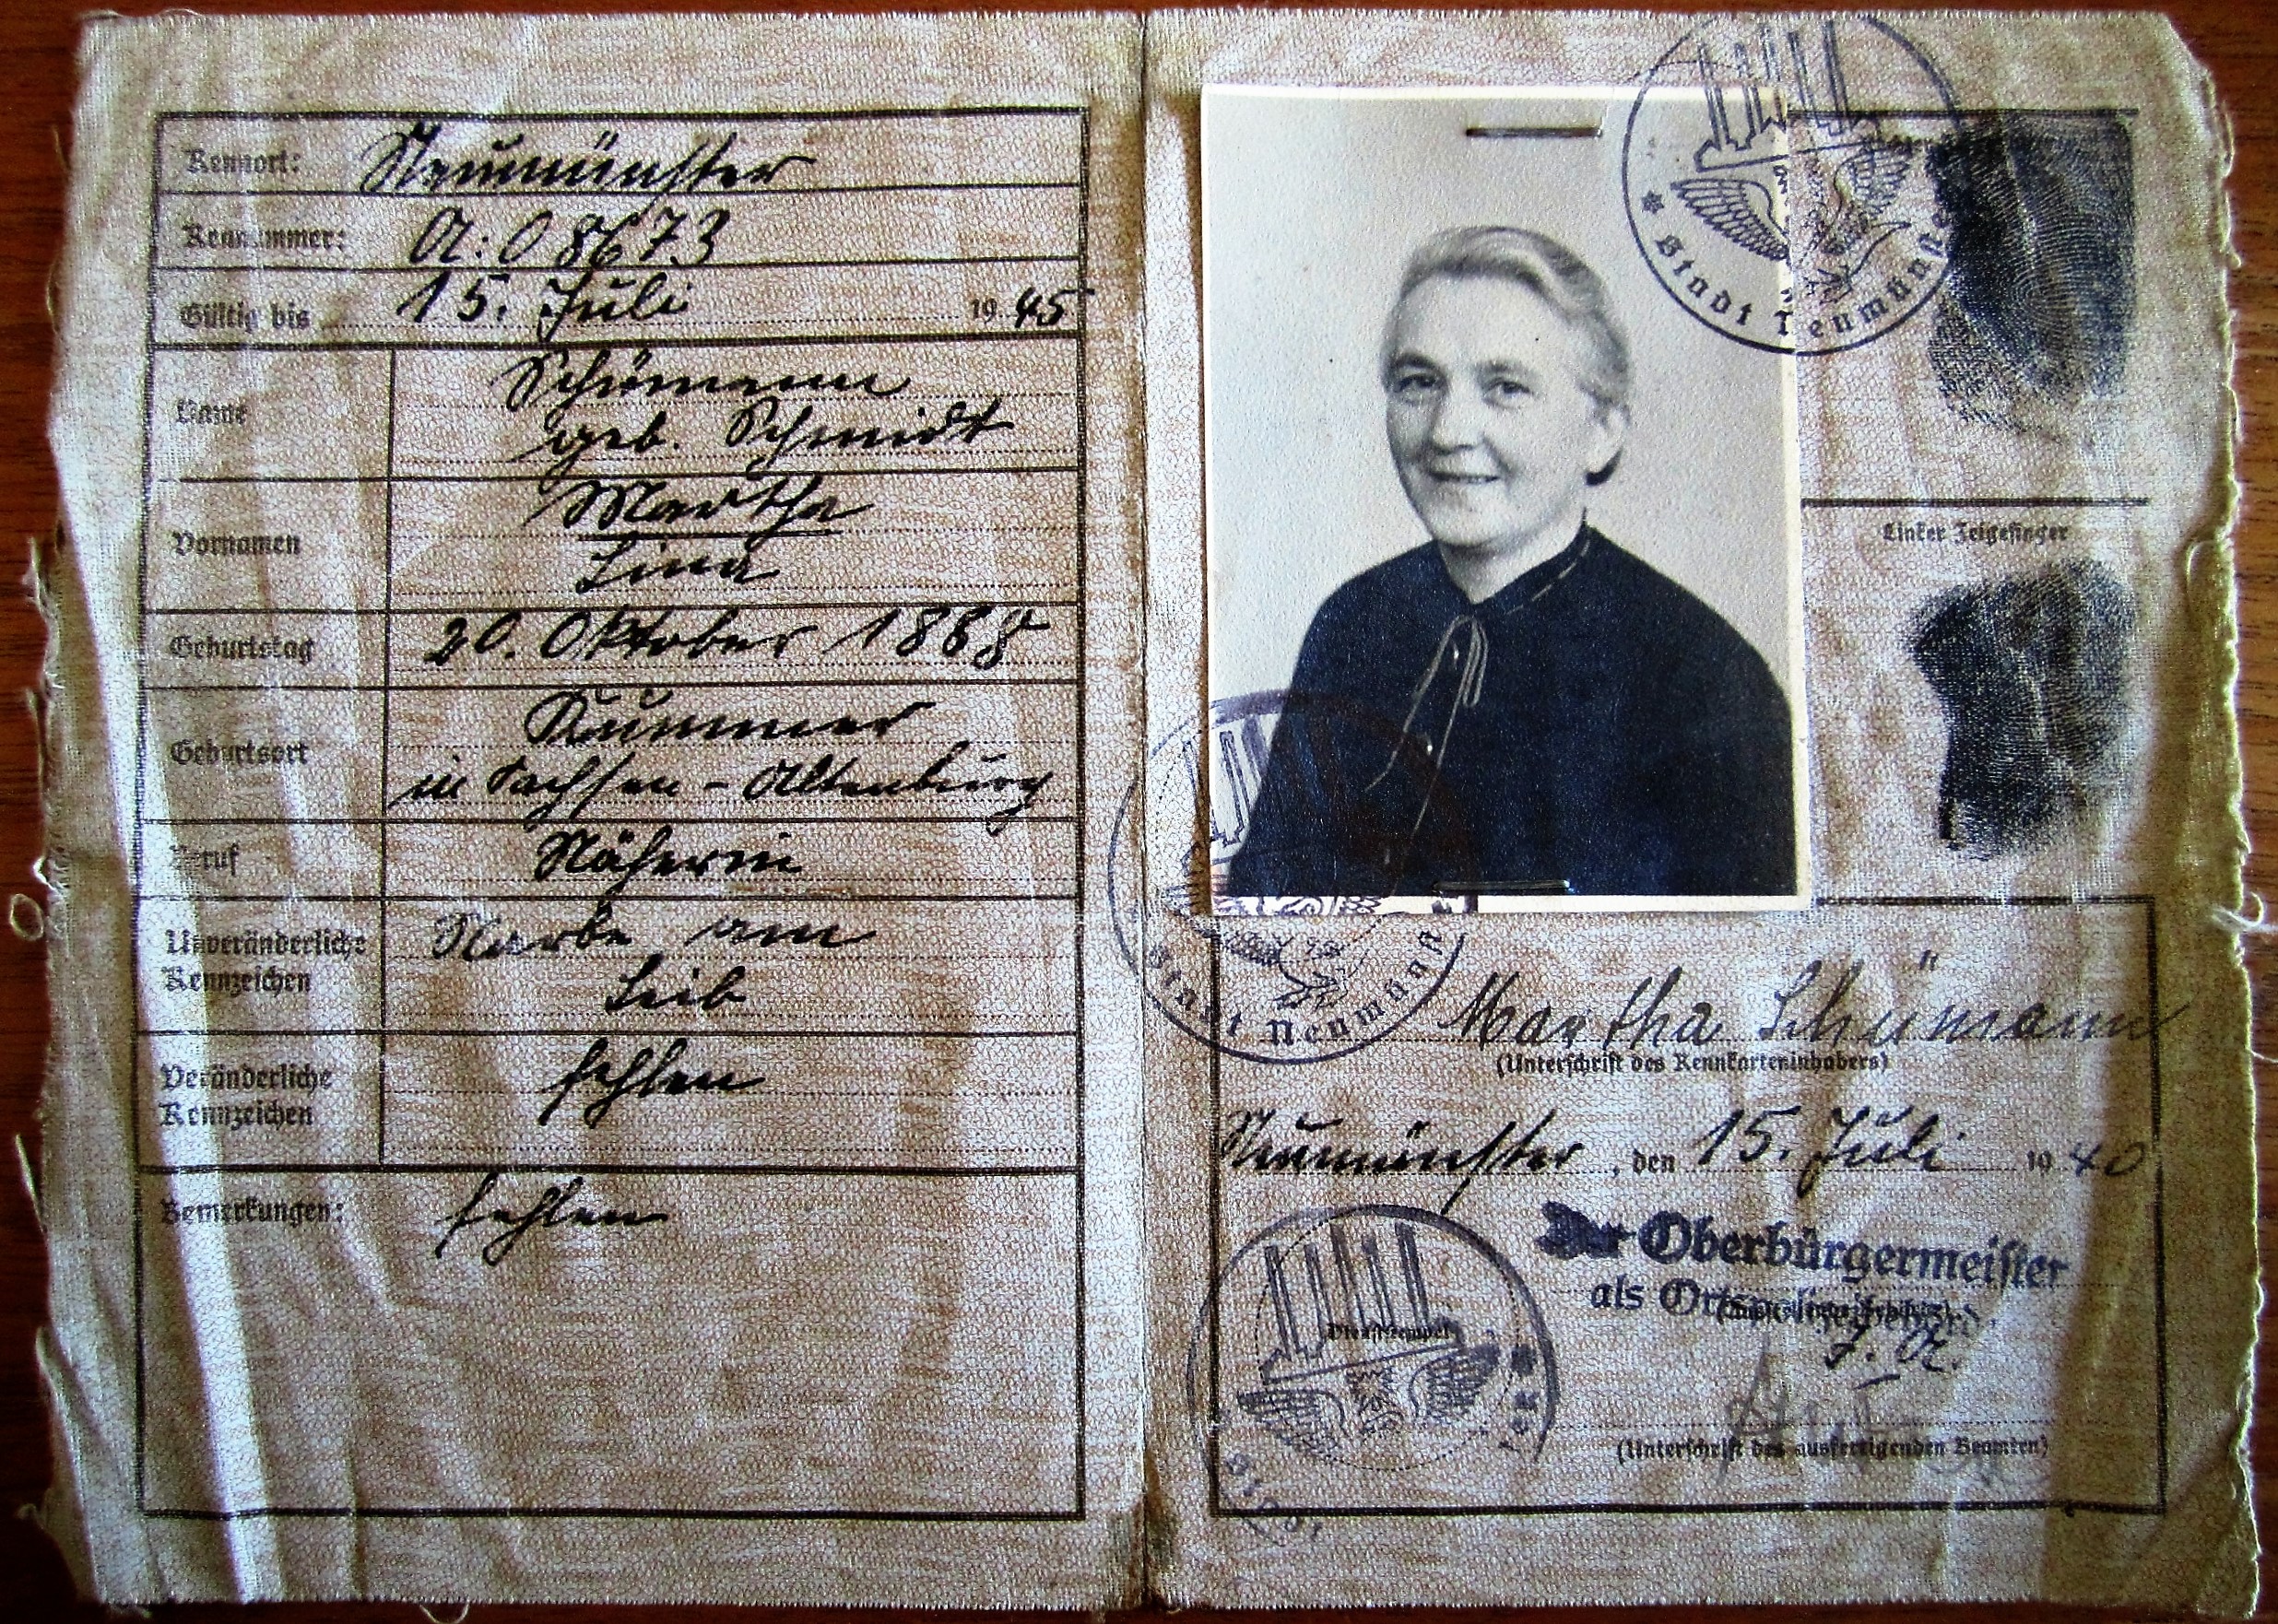 Kennort: Neumünster
Kennummer: A: 08673
Gültig bis 15. Juli 1945
Name Schümann
geb. Schmidt
Vornamen Martha
Lina
Geburtstag 20. Oktober 1888
Geburtsort Kummer
in Sachsen-Altenburg
Beruf Näherin
Unveränderliche Narbe am
Kennzeichen Leib
Veränderliche fehlen
Kennzeichen
Bemerkungen: fehlen
* Stadt Neumünster
Linker Zeigefinger
Stadt Neumünster
Martha Schümann
(Unterschrift des Kennkarteninhabers)
Neumünster, den 15. Juli 1940
Der Oberbürgermeister
als Ortspolizeibehörde.
Dienststempel
J. A.
(Unterschrift des ausfertigenden Beamten)